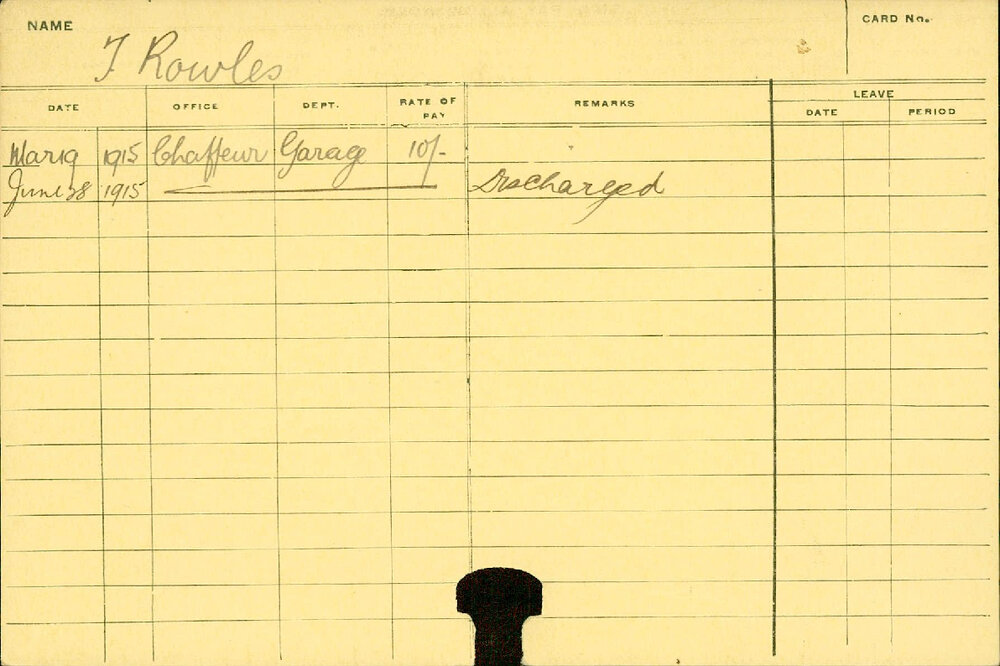 NAME
T Rowles
CARD No.
DATE OFFICE DEPT. RATE OF PAY REMARKS LEAVE
DATE PERIOD
Mar 19 1915 Chaffeur Garage 10/-
June 28 1915 Discharged